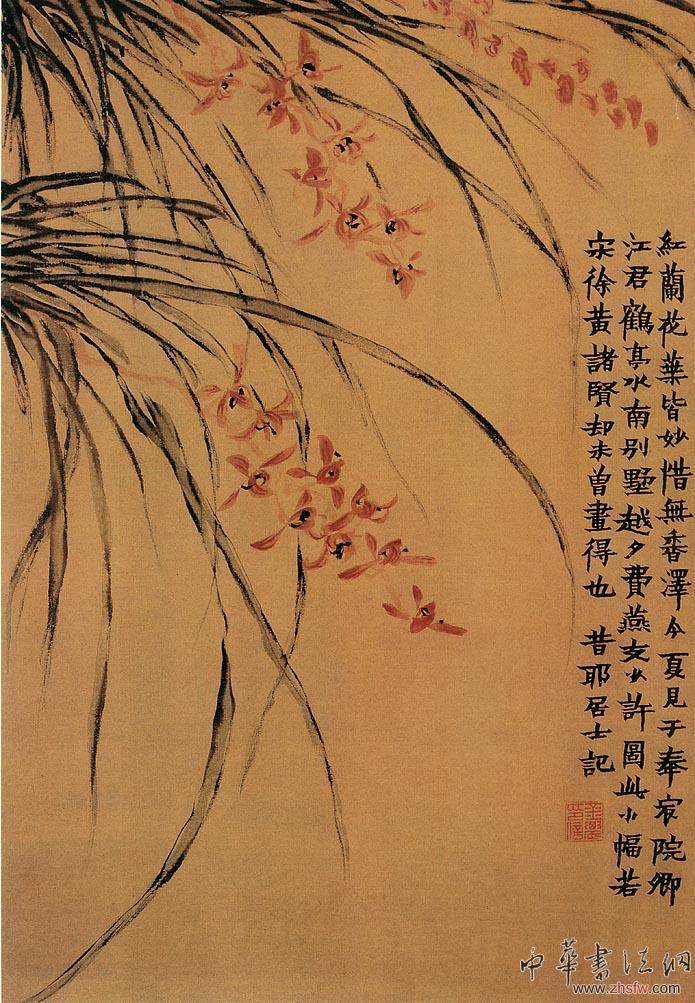 紅蘭花葉皆妙惜無香澤今夏見于奉宸院卿
江君鶴亭水南別墅越夕費燕支少許圖此小幅若
宋徐黃諸賢却未曾畫得也　昔耶居士記
中華書法網
www.zhsfw.com